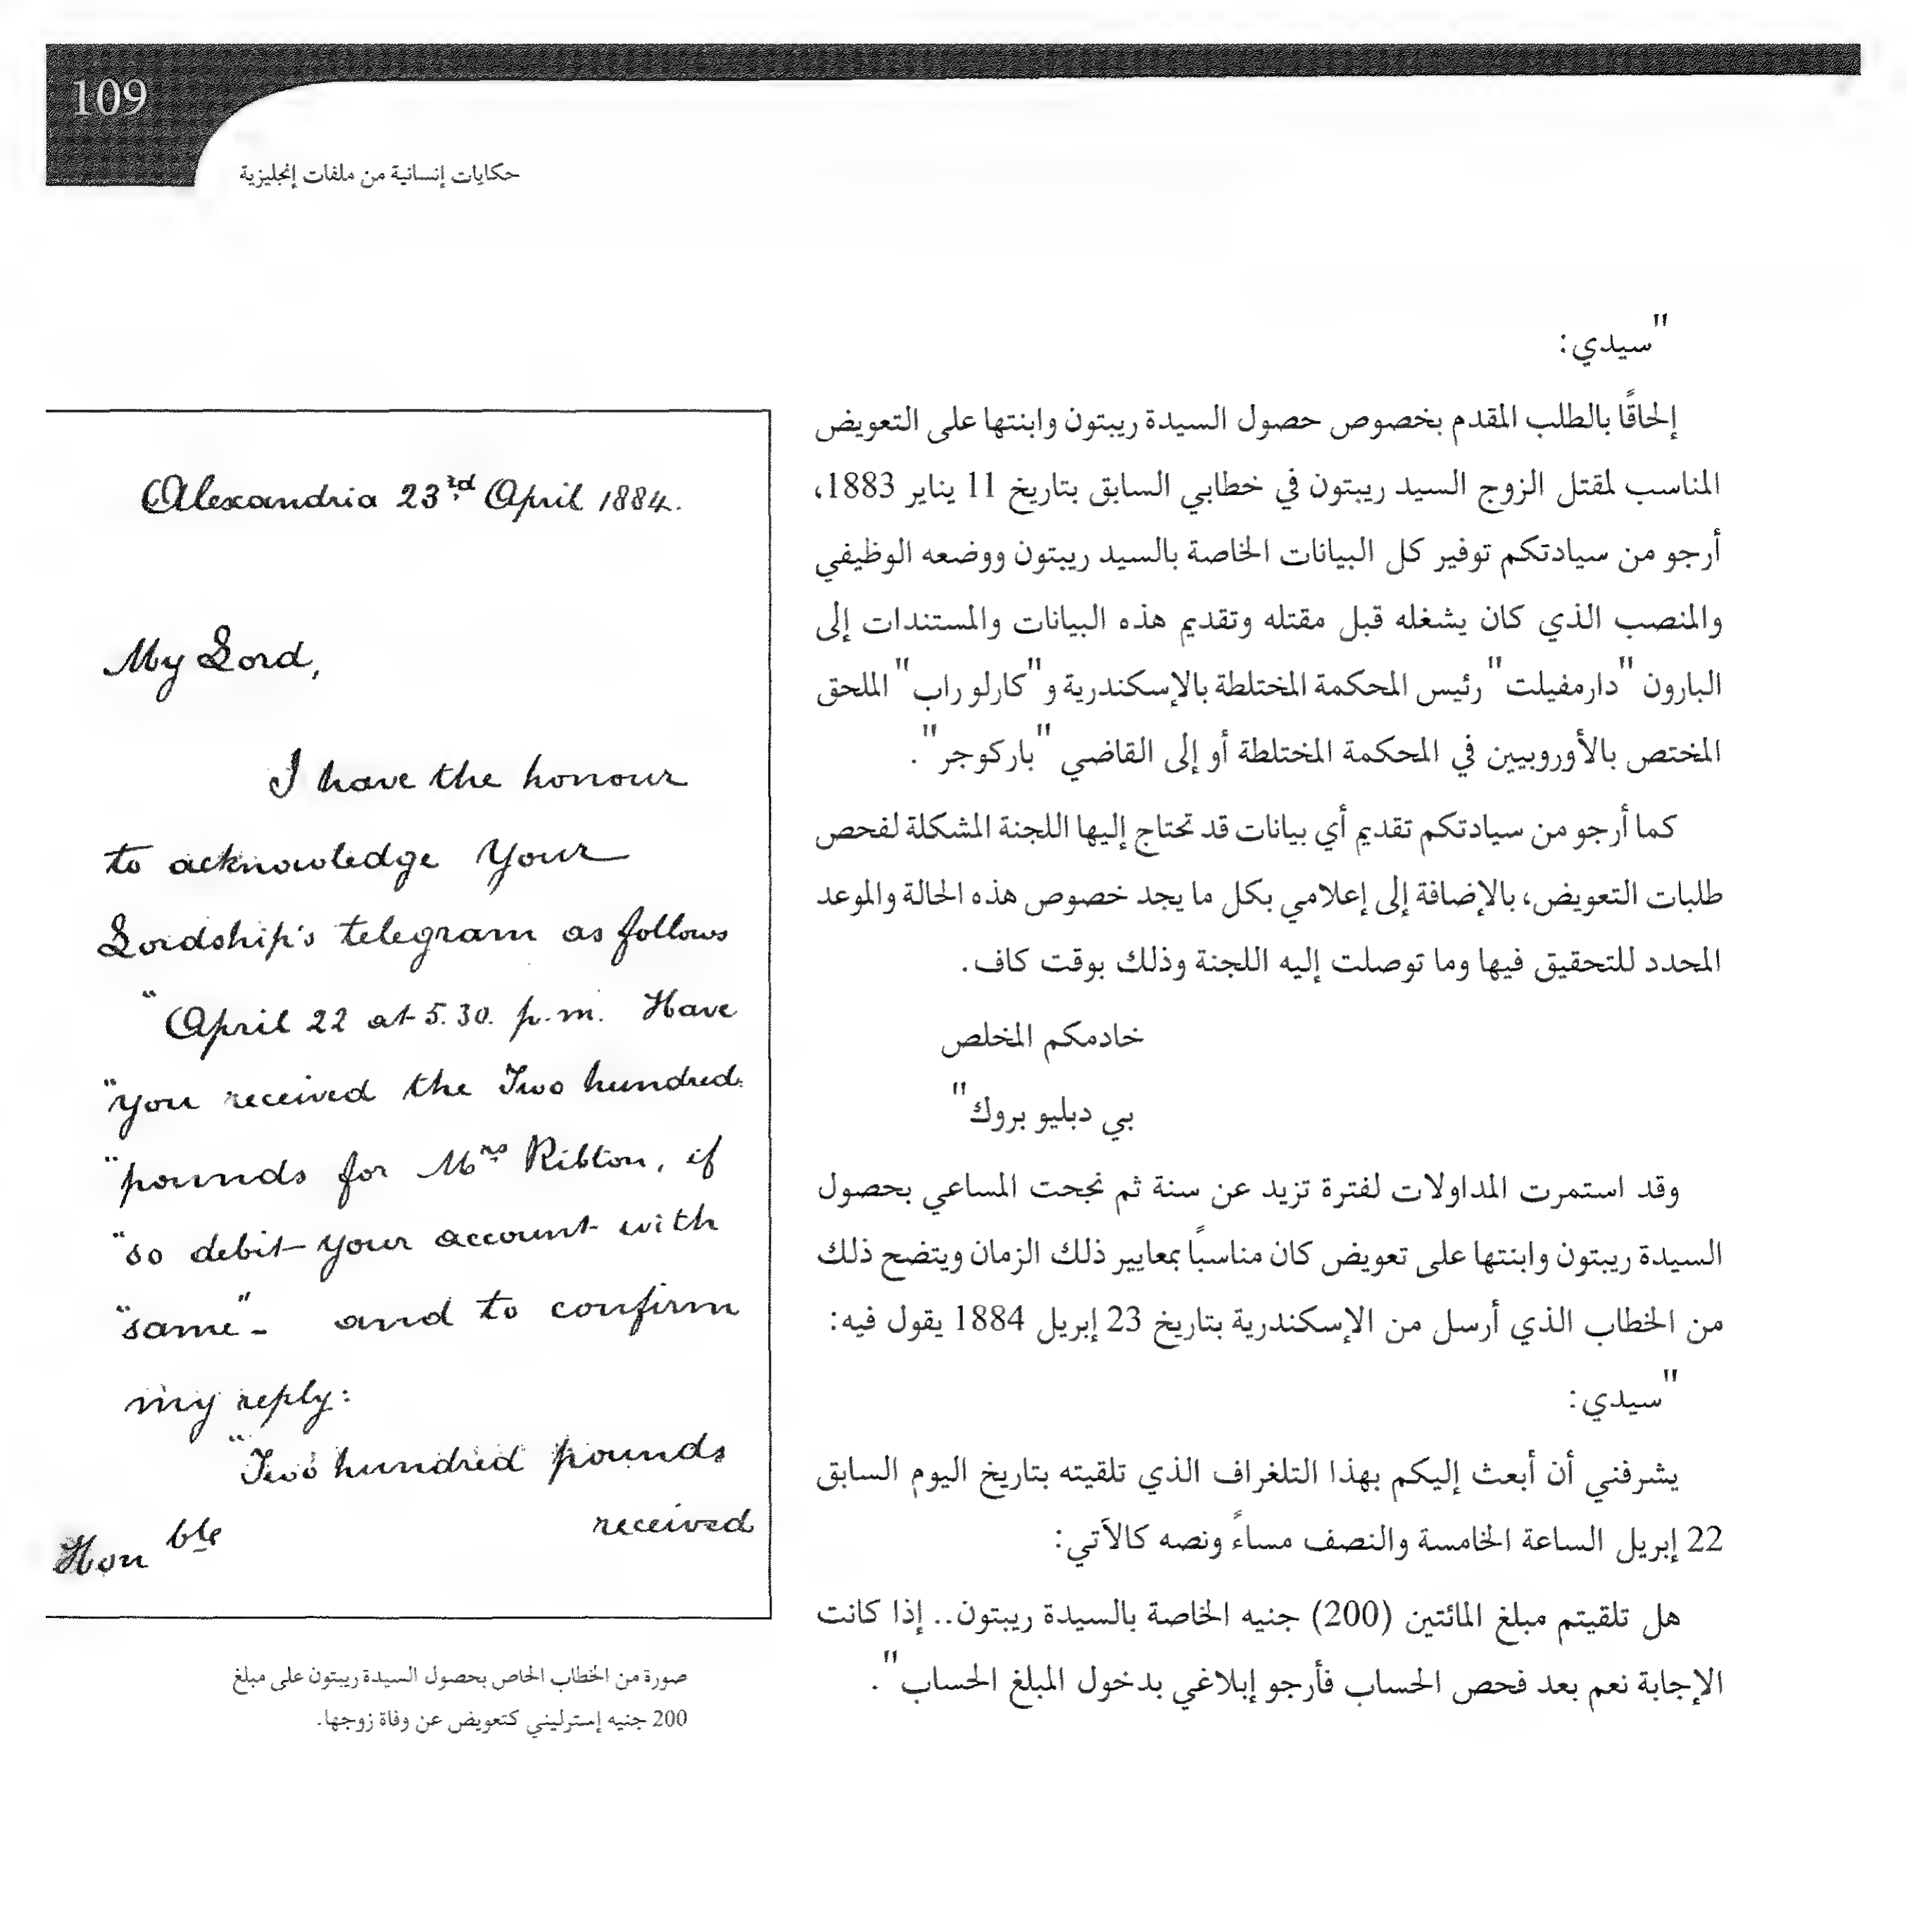 109
حكايات إنسانية من ملفات إنجليزية
"سيدي:
إلحاقًا بالطلب المقدم بخصوص حصول السيدة ريبتون وابنتها على التعويض
المناسب لمقتل الزوج السيد ريبتون في خطابي السابق بتاريخ 11 يناير 1883،
أرجو من سيادتكم توفير كل البيانات الخاصة بالسيد ريبتون ووضعه الوظيفي
والمنصب الذي كان يشغله قبل مقتله وتقديم هذه البيانات والمستندات إلى
البارون "دارمفيلت" رئيس المحكمة المختلطة بالإسكندرية و"كارلو راب" الملحق
المختص بالأوروبيين في المحكمة المختلطة أو إلى القاضي "باركوجر".
كما أرجو من سيادتكم تقديم أي بيانات قد تحتاج إليها اللجنة المشكلة لفحص
طلبات التعويض، بالإضافة إلى إعلامي بكل ما يجد خصوص هذه الحالة والموعد
المحدد للتحقيق فيها وما توصلت إليه اللجنة وذلك بوقت كاف.
خادمكم المخلص
بي دبليو بروك"
وقد استمرت المداولات لفترة تزيد عن سنة ثم نجحت المساعي بحصول
السيدة ريبتون وابنتها على تعويض كان مناسبًا بمعايير ذلك الزمان ويتضح ذلك
من الخطاب الذي أرسل من الإسكندرية بتاريخ 23 إبريل 1884 يقول فيه:
"سيدي:
يشرفني أن أبعث إليكم بهذا التلغراف الذي تلقيته بتاريخ اليوم السابق
22 إبريل الساعة الخامسة والنصف مساءً ونصه كالآتي:
هل تلقيتم مبلغ المائتين (200) جنيه الخاصة بالسيدة ريبتون.. إذا كانت
الإجابة نعم بعد فحص الحساب فأرجو إبلاغي بدخول المبلغ الحساب".
Alexandria 23rd April 1884.
My Lord,
I have the honour
to acknowledge Your
Lordship's telegram as follows
"April 22 at 5.30. p.m. Have
"you received the Two hundred
"pounds for Mrs Ribton, if
"so debit your account with
"same"- and to confirm
my reply:
"Two hundred pounds
received
Honble
صورة من الخطاب الخاص بحصول السيدة ريبتون على مبلغ
200 جنيه إسترليني كتعويض عن وفاة زوجها.